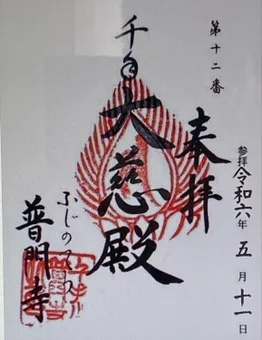 第十二番
奉拝
参拝 令和六年 五月十一日
千手
大慈殿
普門寺